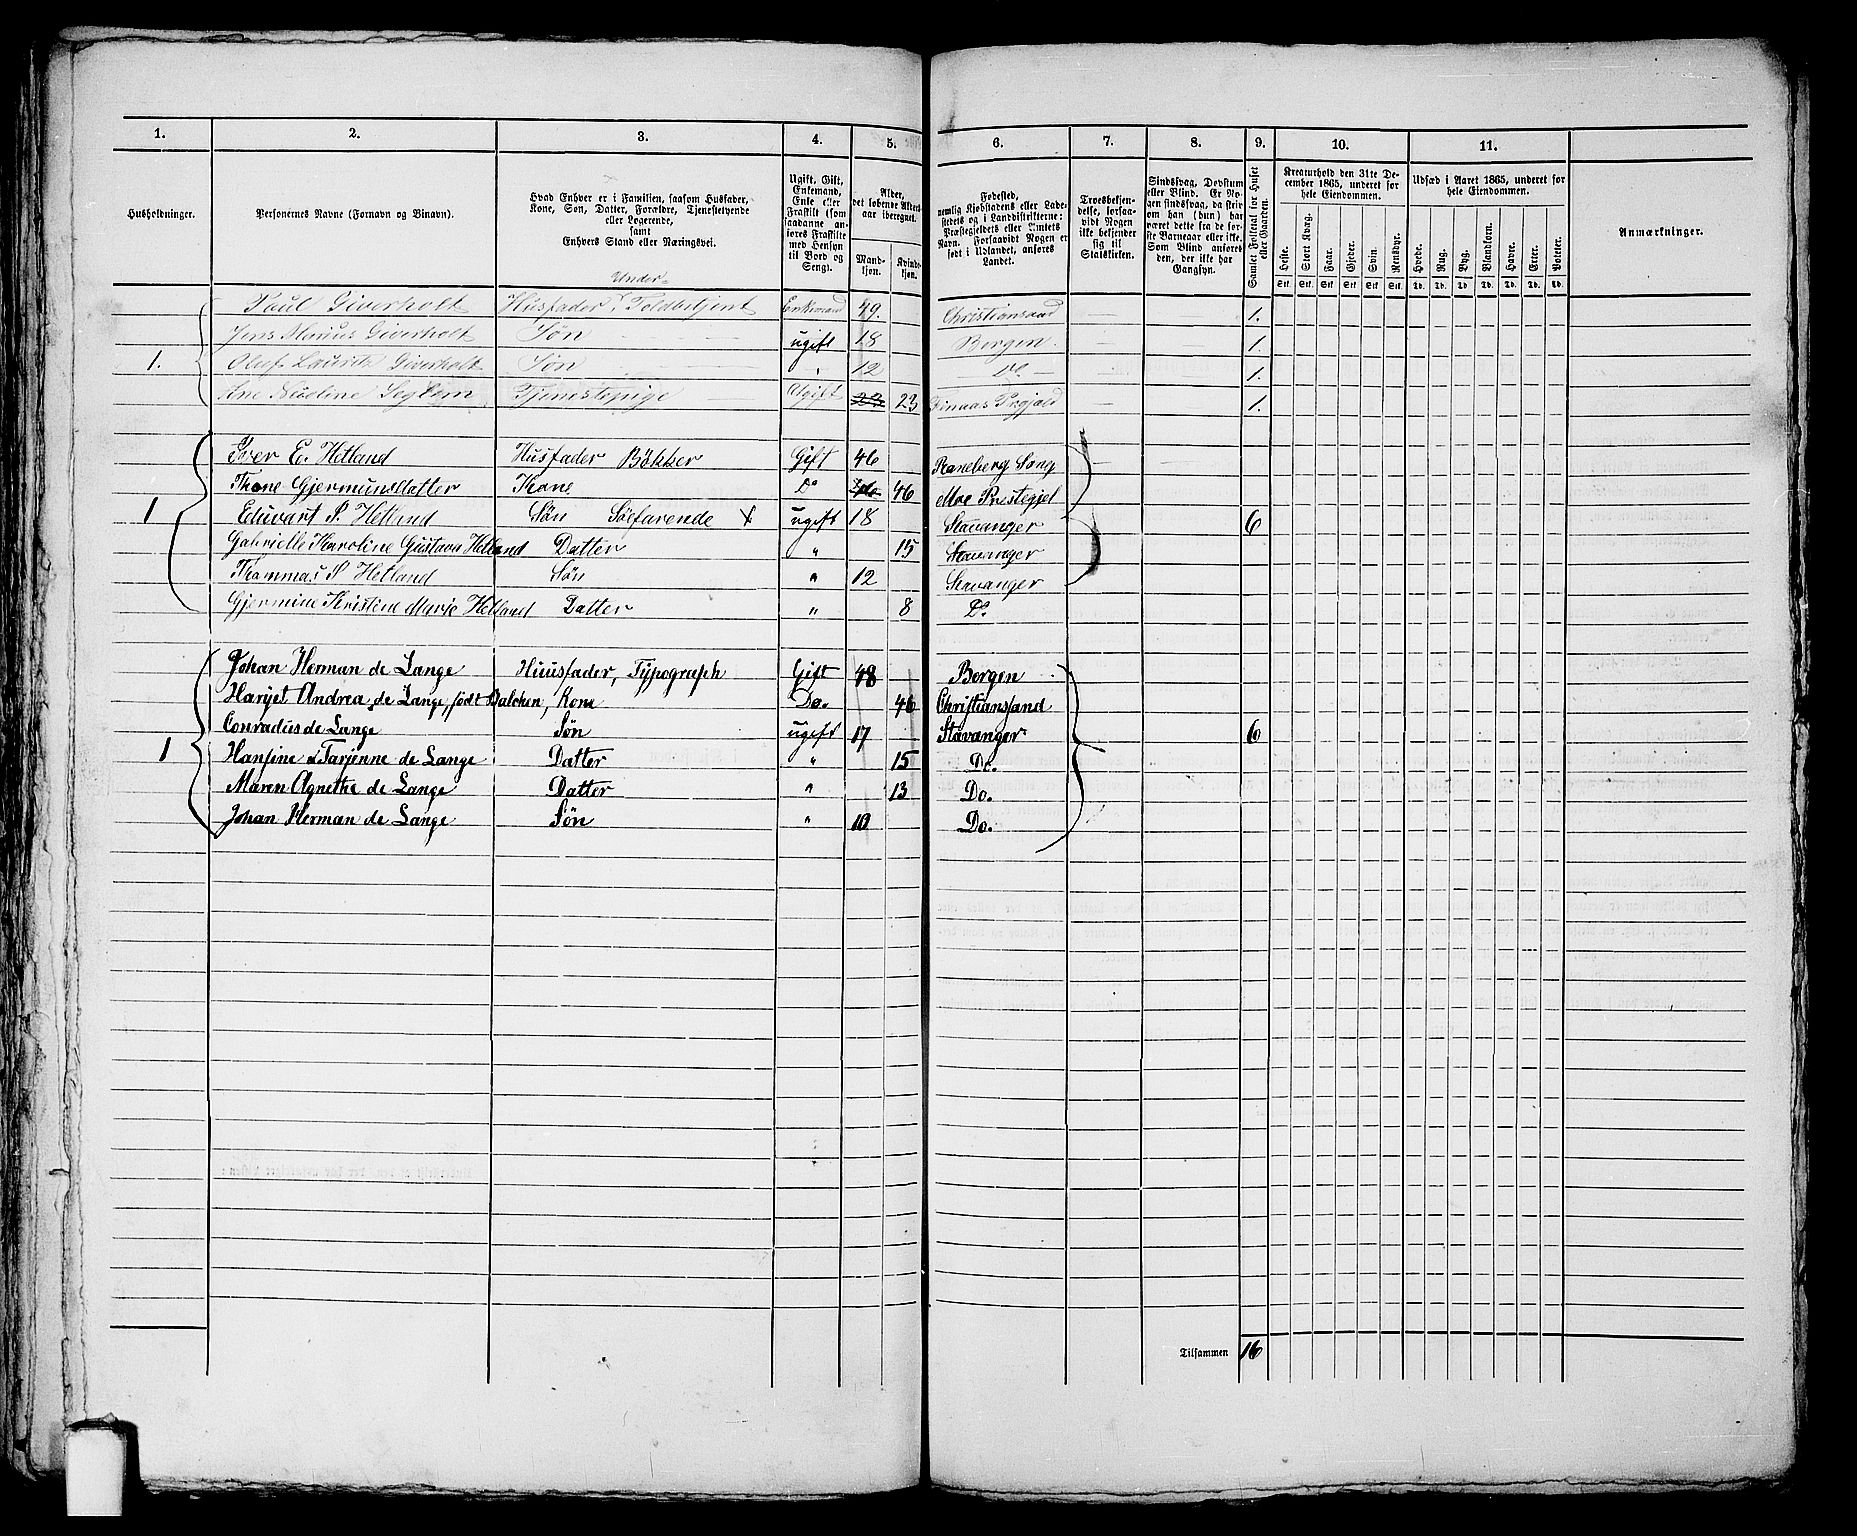 1. 2. 3. 4. 5. 6. 7. 8. 9. 10. 11.
Husholdninger.
Personernes Navne (Fornavn og Binavn).
Hvad Enhver er i Familien, saasom Husfader, Kone, Søn, Datter, Forældre, Tjenestetyende eller Logerende, samt Enhvers Stand eller Næringsvei.
Ugift, Gift, Enkemand, Enke eller Fraskilt (som saadanne anføres Fraskilte med Hensyn til Bord og Seng).
Alder, det løbende Alders-aar iberegnet.
Mandkjøn. Kvindekjøn.
Fødested, nemlig Kjøbstadens eller Ladestedets og i Landdistrikterne: Præstegjeldets eller Amtets Navn. Forsaavidt Nogen er født i Udlandet, anføres Landet.
Troesbekjendelse, forsaavidt Nogen ikke bekjender sig til Statskirken.
Sindssvag, Døvstum eller Blind. Er Nogen sindssvag, da skrives om han (hun) har været dette fra de første Barneaar eller ikke. Som Blind anføres den, der ikke har Gangsyn.
Samlet Folketal for Huset eller Gaarden.
Kreaturhold den 31te December 1865, underet for hele Eiendommen.
Heste. Stort Kvæg. Faar. Gjeder. Svin. Rensdyr.
Stk. Stk. Stk. Stk. Stk. Stk.
Udsæd i Aaret 1865, underet for hele Eiendommen.
Hvede. Rug. Byg. Blandkorn. Havre. Erter. Poteter.
Td. Td. Td. Td. Td. Td. Td.
Anmærkninger.
Under-
Paul Giverholt Husfader, Toldbetjent Enkemand 49. Christianssand 1.
Jens Marius Giverholt Søn ugift 18 Bergen 1.
1. Oluf Lauritz Giverholt Søn " 12 Do 1.
Ane Seglem Tjenestepige Ugift 23 23 1.
Iver E. Hetland Husfader Bøkker Gift 46
Thone Gjermunsdatter Kone Do 46 46 Moe Prestegjel
1 Eduvart P. Hetland Søn Søefarende X ugift 18 Stavanger 6
Gabrielle Karoline Gustava Hetland Datter " 15 Stavanger
Thommas P Hetland Søn " 12 Stavanger
Gjermine Kristine Marie Hetland Datter " 8 Do.
Johan Herman de Lange Huusfader, Typograph Gift 48 Bergen
Harijet Andrea de Lange, født Balchen, Kone Do. 46 Christiansand
Conradus de Lange Søn ugift 17 Stavanger 6
1 Hansine Tarjenne de Lange Datter " 15 Do.
Maren Agnethe de Lange Datter " 13 Do.
Johan Herman de Lange Søn " 10 Do.
Tilsammen 16